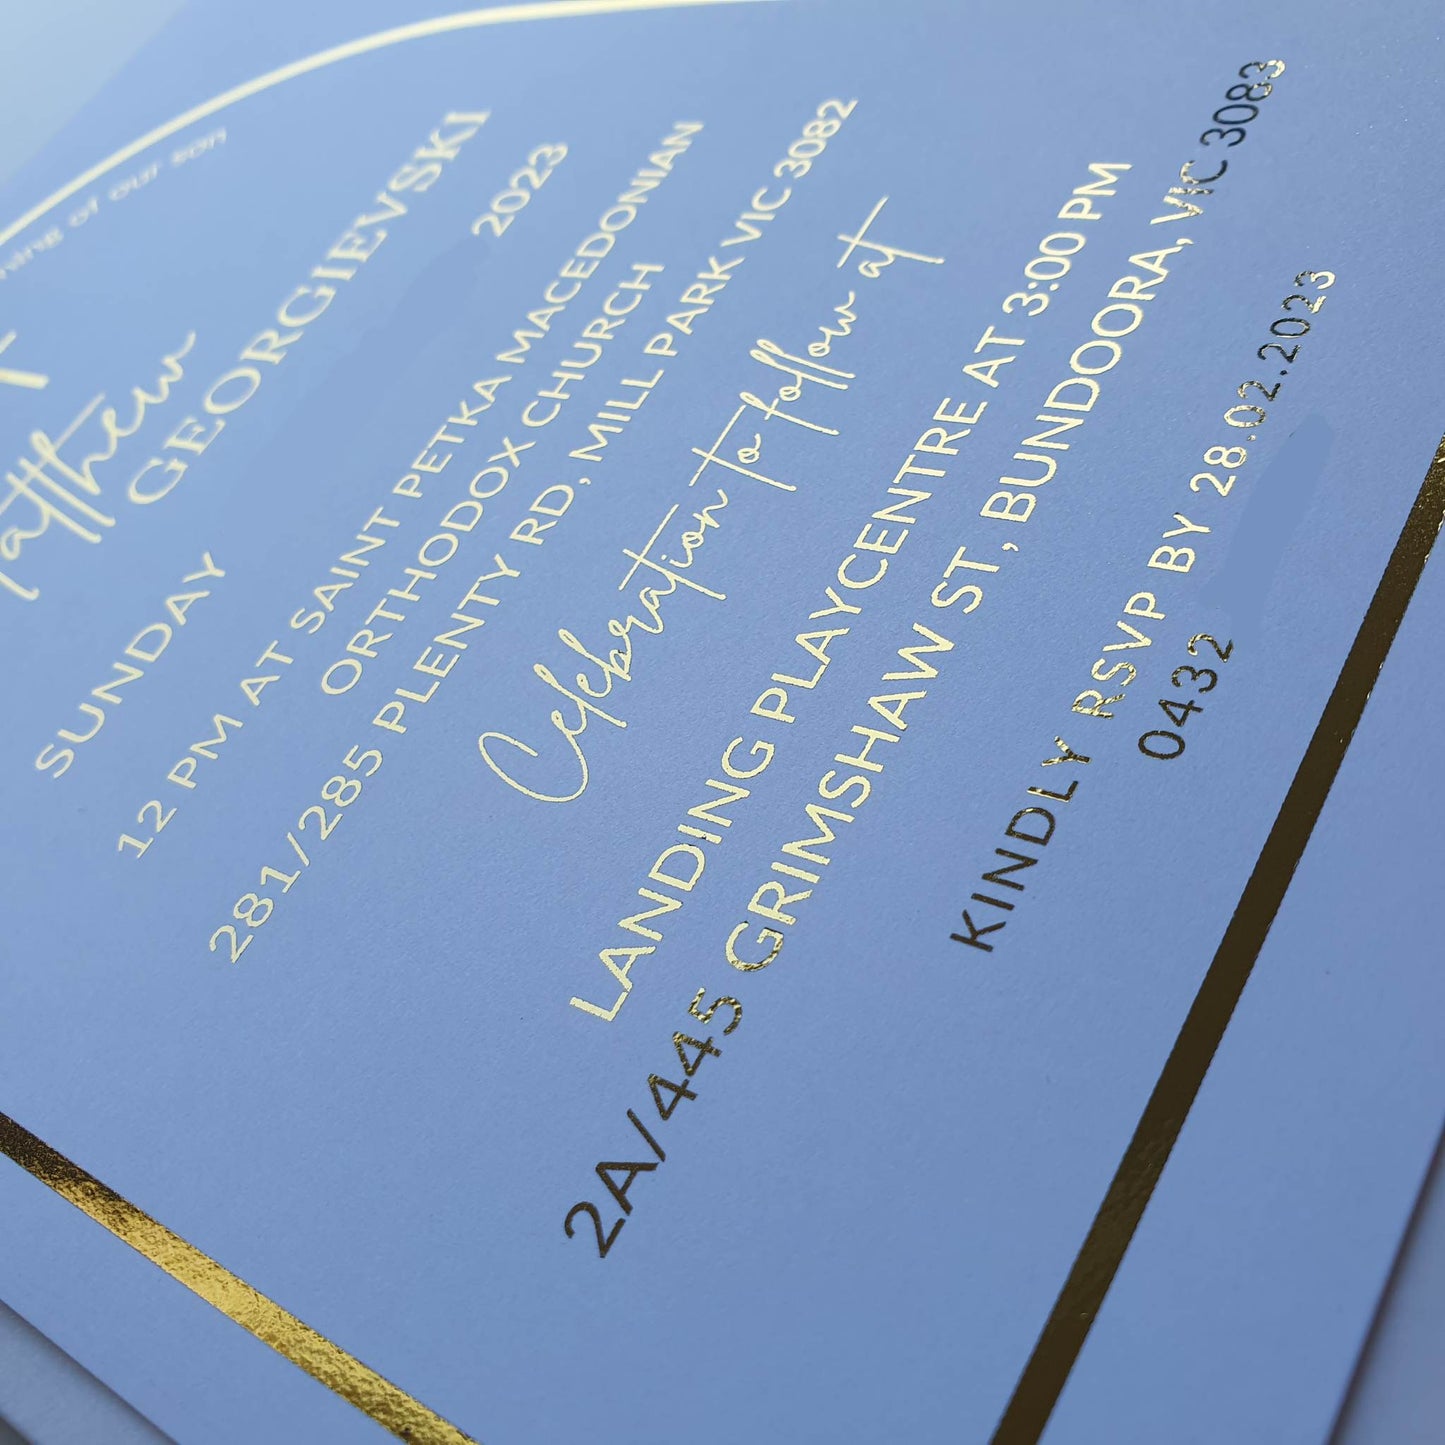 of our son
Matthew
GEORGIEVSKI
SUNDAY 2023
12 PM AT SAINT PETKA MACEDONIAN
ORTHODOX CHURCH
281/285 PLENTY RD, MILL PARK VIC 3082
Celebration to follow at
LANDING PLAYCENTRE AT 3:00 PM
2A/445 GRIMSHAW ST, BUNDOORA, VIC 3083
KINDLY RSVP BY 28.02.2023
0432